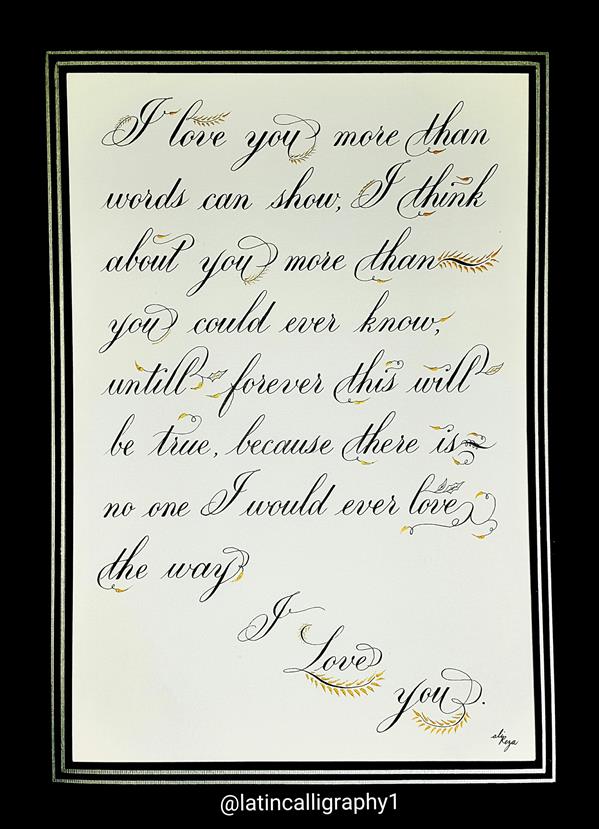 I love you more than
words can show, I think
about you more than
you could ever know,
untill forever this will
be true, because there is
no one I would ever love
the way
I
Love
you.
ali
Reza
@latincalligraphy1